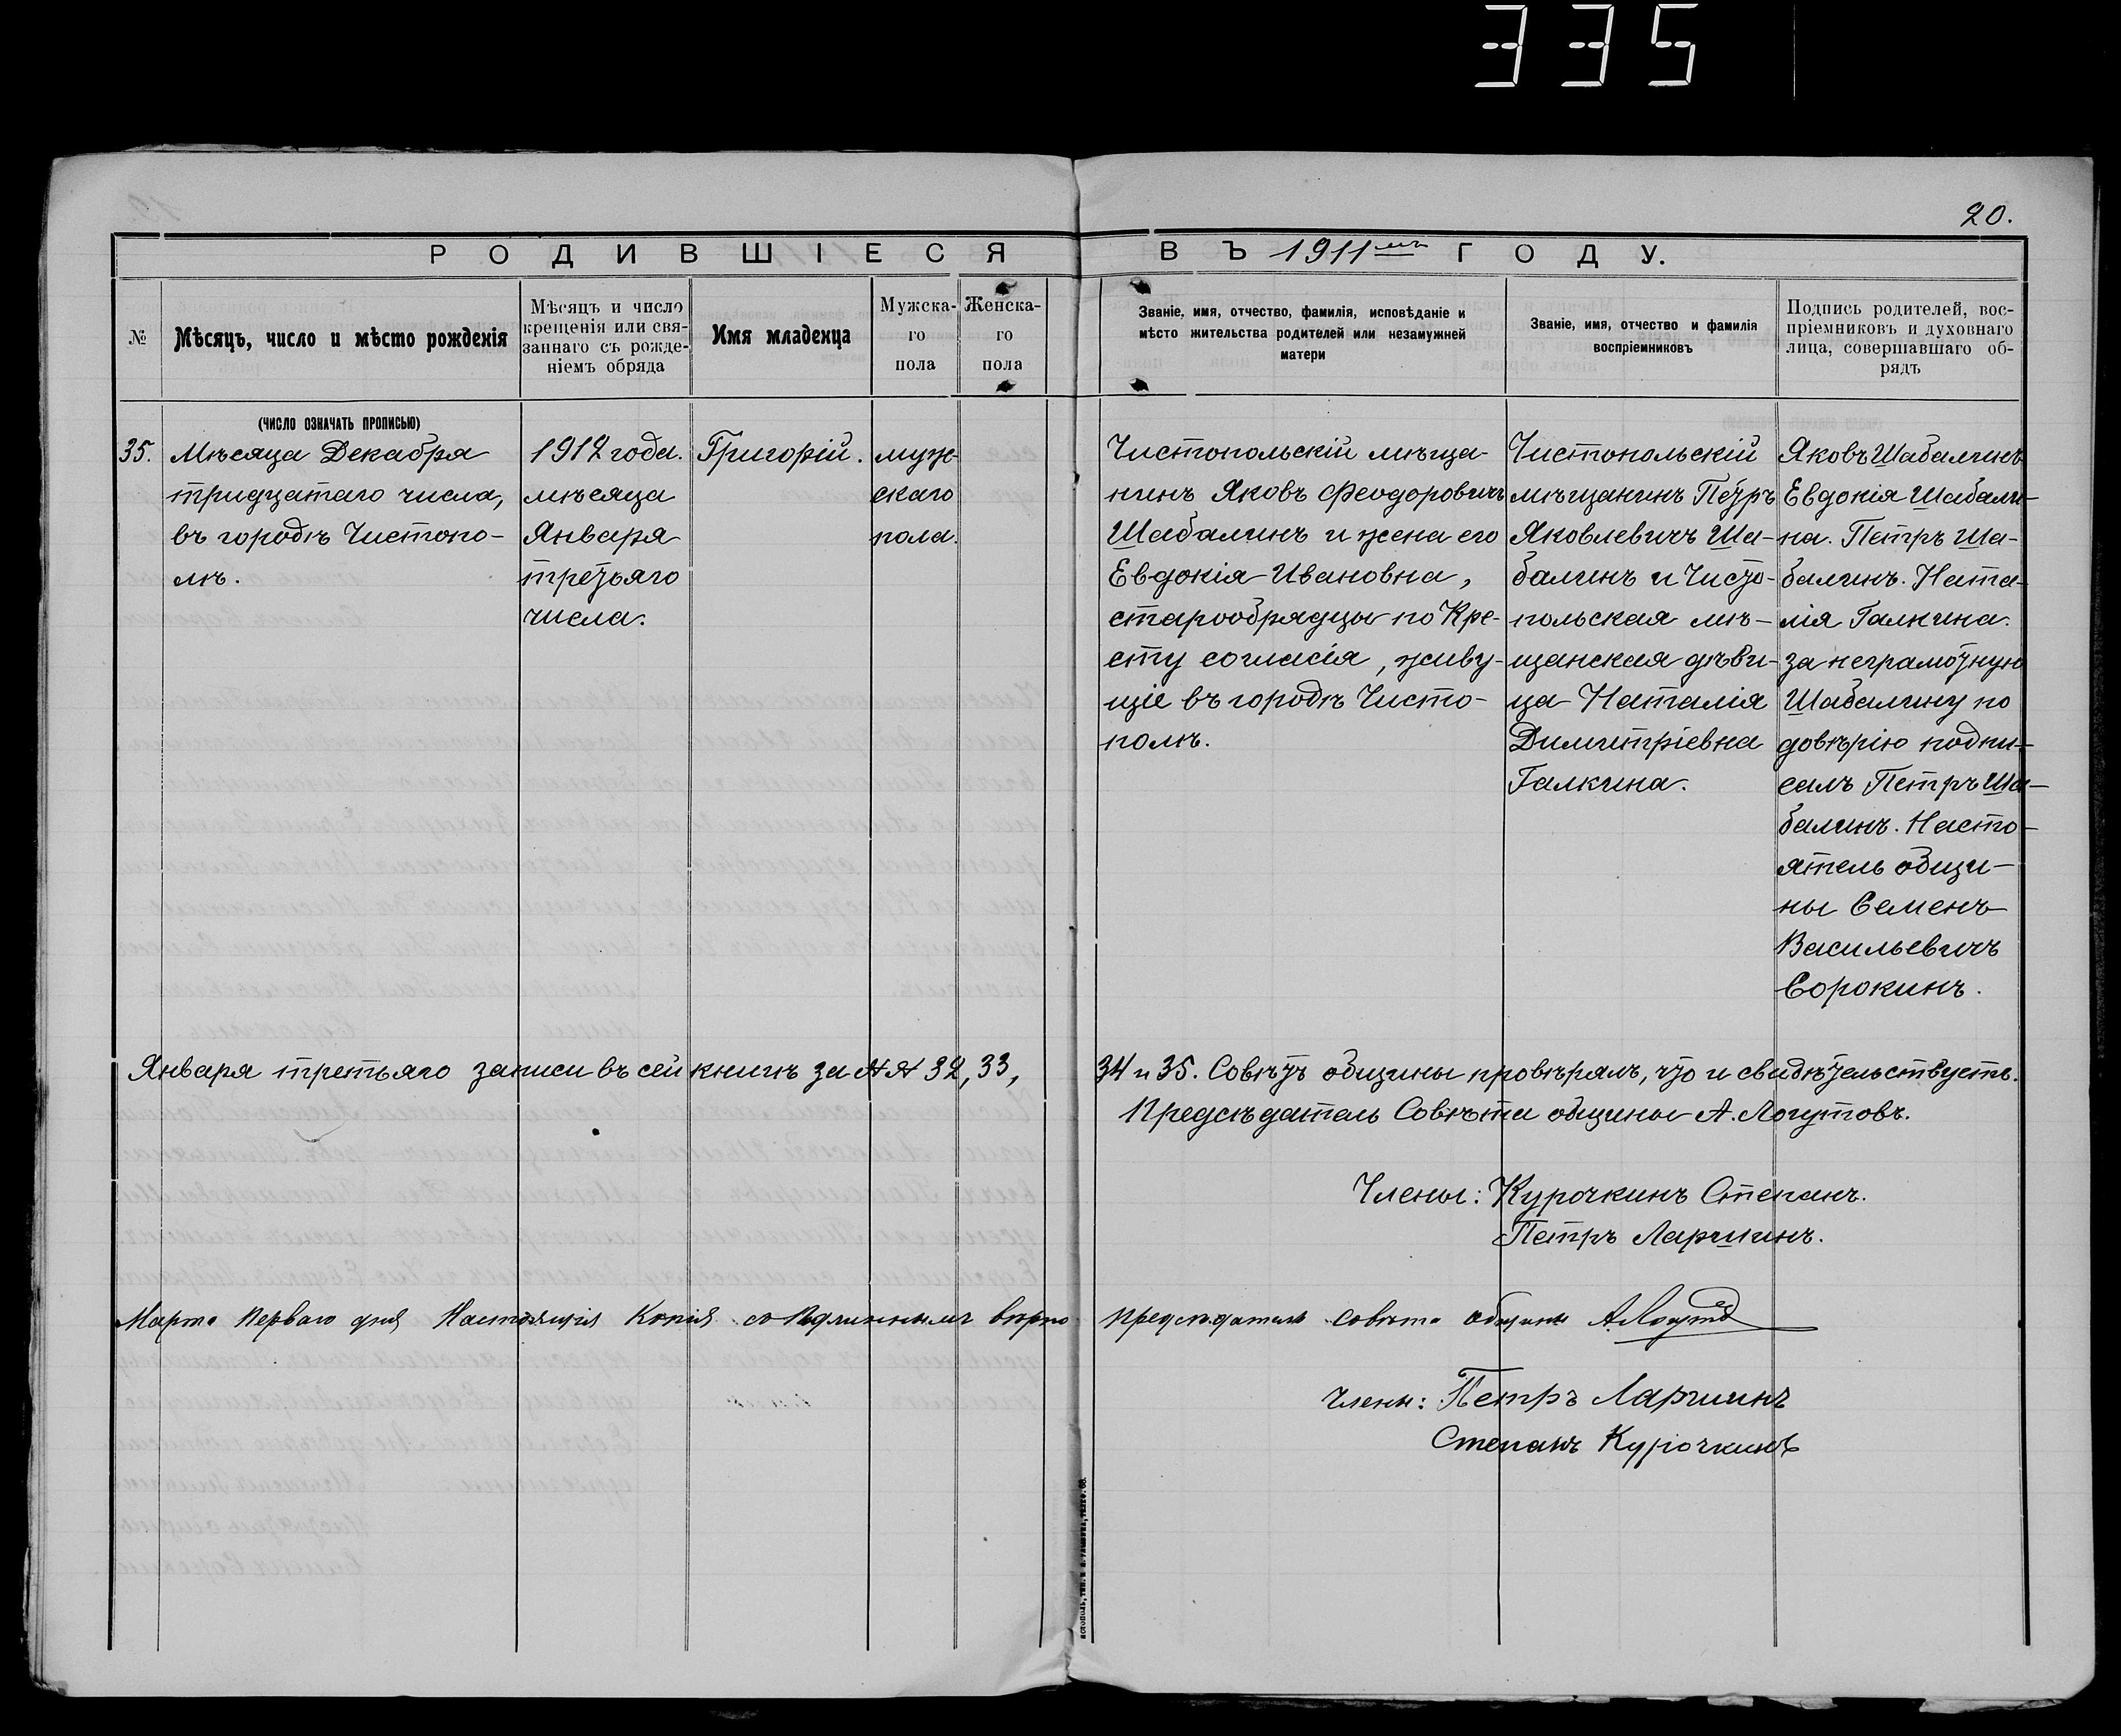 335
20.
РОДИВШІЕСЯ ВЪ 1911мъ ГОДУ.
№
Мѣсяцъ, число и мѣсто рожденія
Мѣсяцъ и число
крещенія или свя-
заннаго съ рожде-
ніемъ обряда
Имя младенца
Мужска-
го
пола
Женска-
го
пола
Званіе, имя, отчество, фамилія, исповѣданіе и
мѣсто жительства родителей или незамужней
матери
Званіе, имя, отчество и фамилія
воспріемниковъ
Подпись родителей, вос-
пріемниковъ и духовнаго
лица, совершавшаго об-
рядъ
(ЧИСЛО ОЗНАЧАТЬ ПРОПИСЬЮ)
35.
Мѣсяца Декабря
тридцатаго числа,
въ городѣ Чистопо-
лѣ.
1912 года.
мѣсяца
Января
третьяго
числа.
Григорій.
муж-
скаго
пола.
Чистопольскій мѣща-
нинъ Яковъ Феодоровичъ
Шабалинъ и жена его
Евдокія Ивановна,
старообрядцы по Кре-
сту согласія, живу-
щіе въ городѣ Чисто-
полѣ.
Чистопольскій
мѣщанинъ Петръ
Яковлевичъ Ша-
балинъ и Чисто-
польская мѣ-
щанская дѣви-
ца Наталія
Димитріевна
Галкина.
Яковъ Шабалинъ
Евдокія Шабали-
на. Петръ Ша-
балинъ. Ната-
лія Галкина.
за неграмотную
Шабалину по
довѣрію подпи-
салъ Петръ Ша-
балинъ. Насто-
ятель общи-
ны Семенъ
Васильевичъ
Сорокинъ.
Января третьяго записи въ сей книгѣ за №№ 32, 33, 34 и 35. Совѣтъ общины провѣрялъ, что и свидѣтельствуетъ.
Предсѣдатель Совѣта общины А. Логутовъ.
Члены: Курочкинъ Степанъ.
Петръ Ларшинъ.
Марта Перваго дня Настоящія Копія съ Подлиннымъ вѣрно Предсѣдатель совѣта общины А. Логутов
Члены: Петръ Ларшинъ
Степанъ Курочкинъ